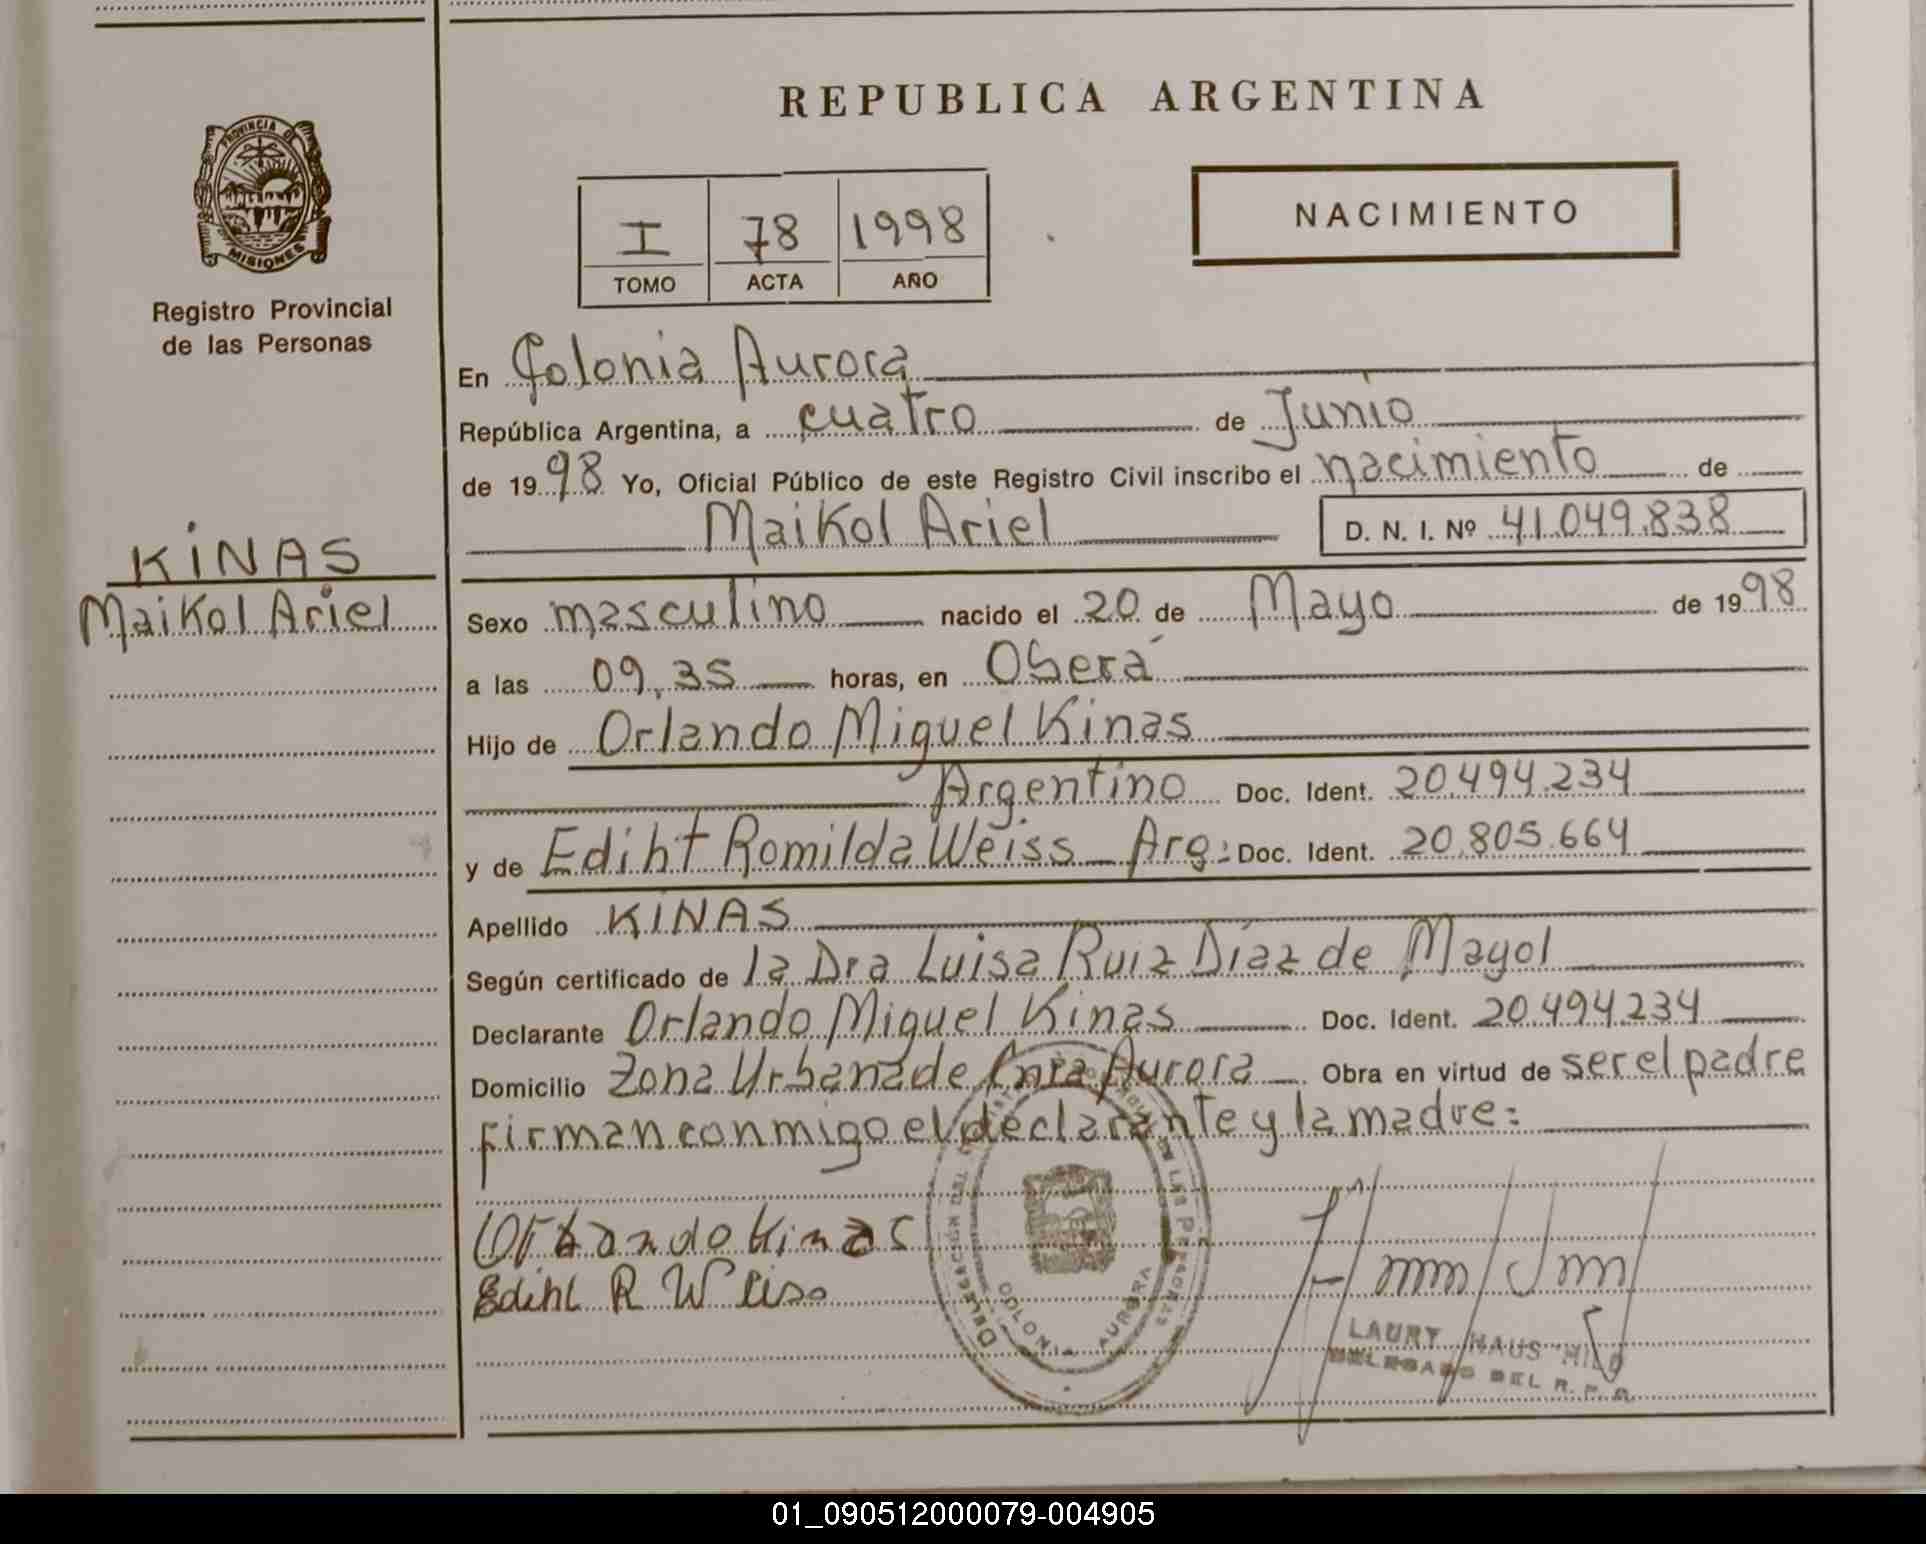 REPUBLICA ARGENTINA
PROVINCIA DE
MISIONES
Registro Provincial
de las Personas
I 78 1998
TOMO ACTA AÑO
NACIMIENTO
En Colonia Aurora
República Argentina, a cuatro de Junio
de 1998 Yo, Oficial Público de este Registro Civil inscribo el nacimiento de
Maikol Ariel D. N. I. Nº 41.049.838
KINAS
Maikol Ariel
Sexo masculino nacido el 20 de Mayo de 1998
a las 09,35 horas, en Oberá
Hijo de Orlando Miguel Kinas
Argentino Doc. Ident. 20.494.234
y de Ediht Romilda Weiss Arg: Doc. Ident. 20.805.664
Apellido KINAS
Según certificado de la Dra Luisa Ruiz Díaz de Mayol
Declarante Orlando Miguel Kinas Doc. Ident. 20.494.234
Domicilio Zona Urbana de Cnia Aurora Obra en virtud de ser el padre
firman conmigo el declarante y la madre:
Orlando Kinas
Ediht R Weiss
DELEGACIÓN DEL DE LAS PERSONAS
COLONIA AURORA
LAURY HAUS HILD
DELEGADO DEL R. P. P.
01_090512000079-004905